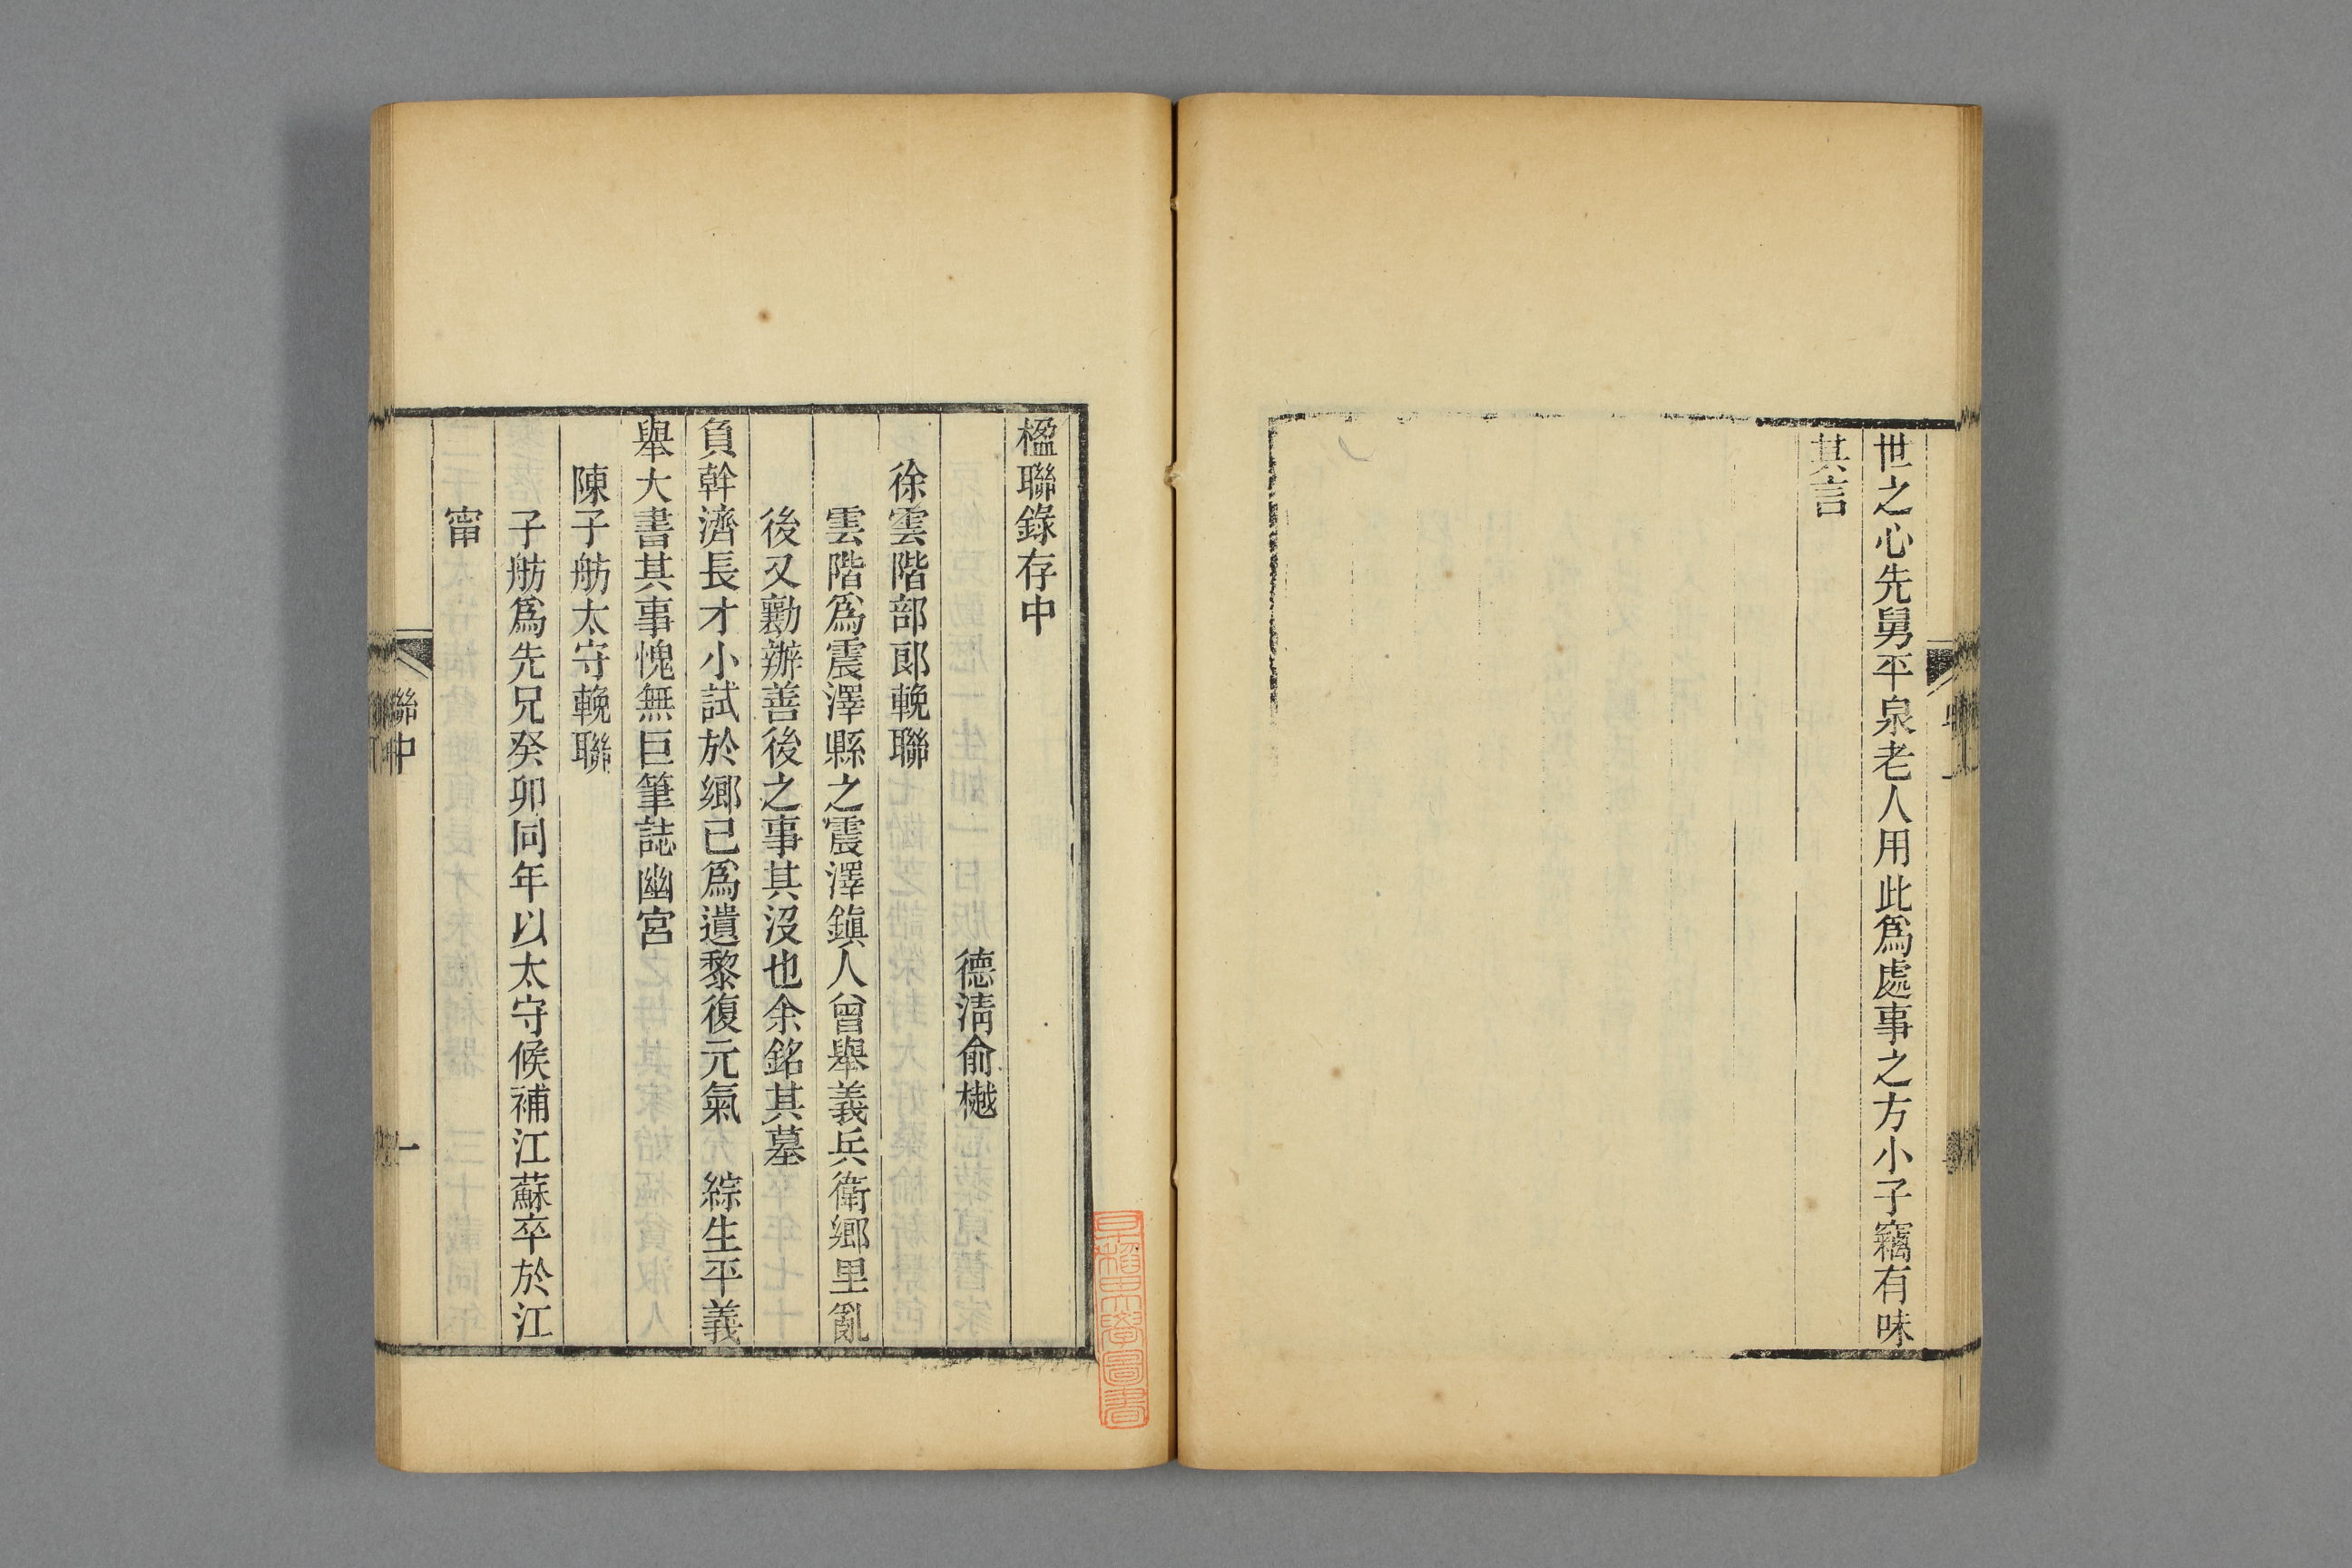 世之心先舅平泉老人用此爲處事之方小子竊有味
其言
楹聯錄存中
德淸俞樾
徐雲階部郞輓聯
雲階爲震澤縣之震澤鎭人曾舉義兵衞鄉里亂
後又勷辦善後之事其沒也余銘其墓
負幹濟長才小試於鄉已爲遺黎復元氣　綜生平義
舉大書其事愧無巨筆誌幽宮
陳子舫太守輓聯
子舫爲先兄癸卯同年以太守候補江蘇卒於江
甯
聯中
一
早稻田大學圖書